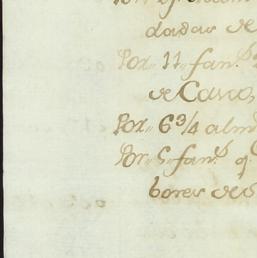 dadas de
Por 11 fan.s
de Cava
Por 6 3/4 alm
Por 5 fan.s q
bores de